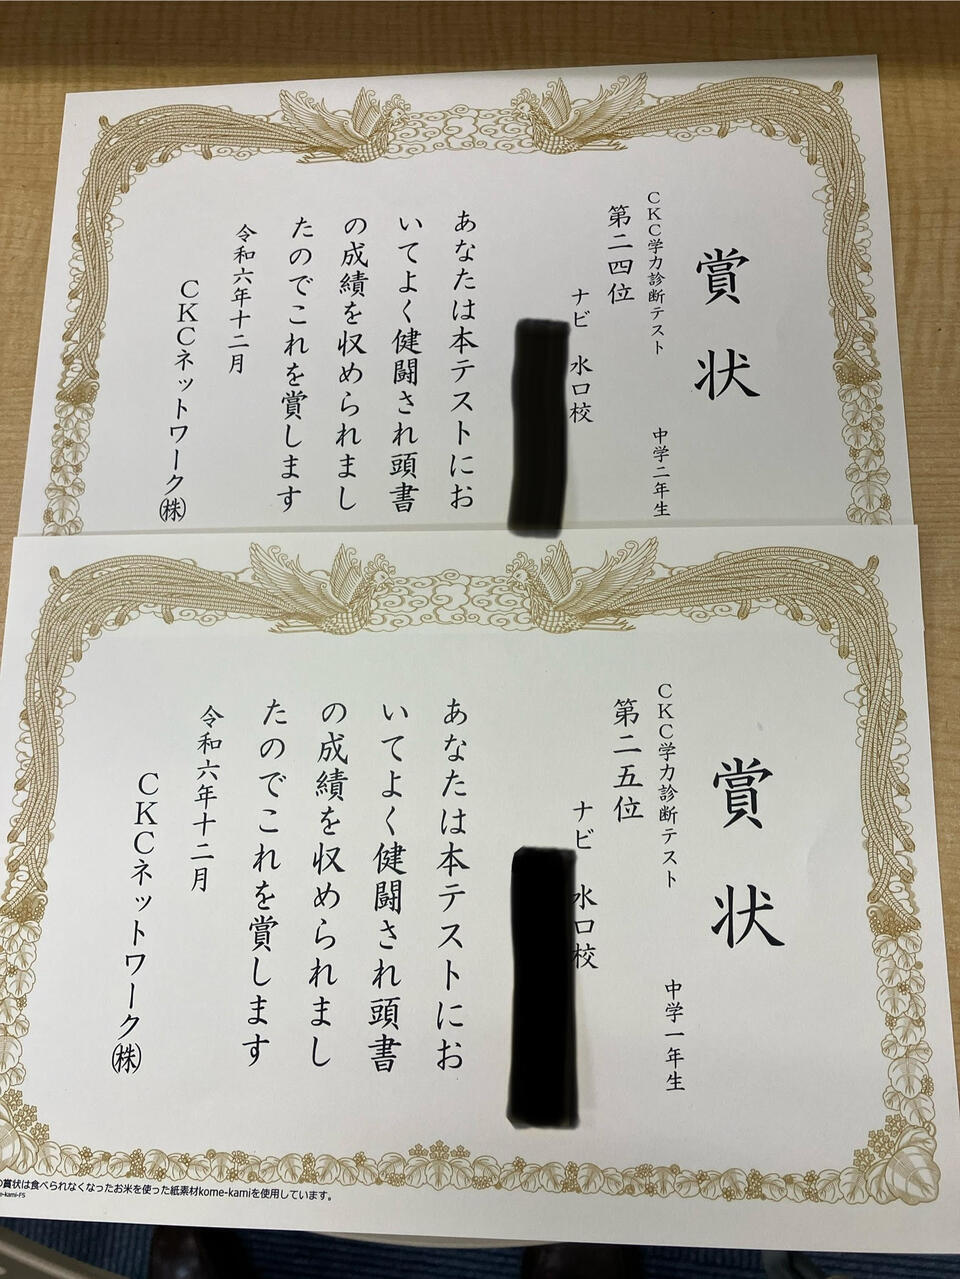 賞状
CKC学力診断テスト 中学二年生
第二四位
ナビ 水口校
あなたは本テストにお
いてよく健闘され頭書
の成績を収められまし
たのでこれを賞します
令和六年十二月
CKCネットワーク㈱
賞状
CKC学力診断テスト 中学一年生
第二五位
ナビ 水口校
あなたは本テストにお
いてよく健闘され頭書
の成績を収められまし
たのでこれを賞します
令和六年十二月
CKCネットワーク㈱
の賞状は食べられなくなったお米を使った紙素材kome-kamiを使用しています。
e-kami-FS